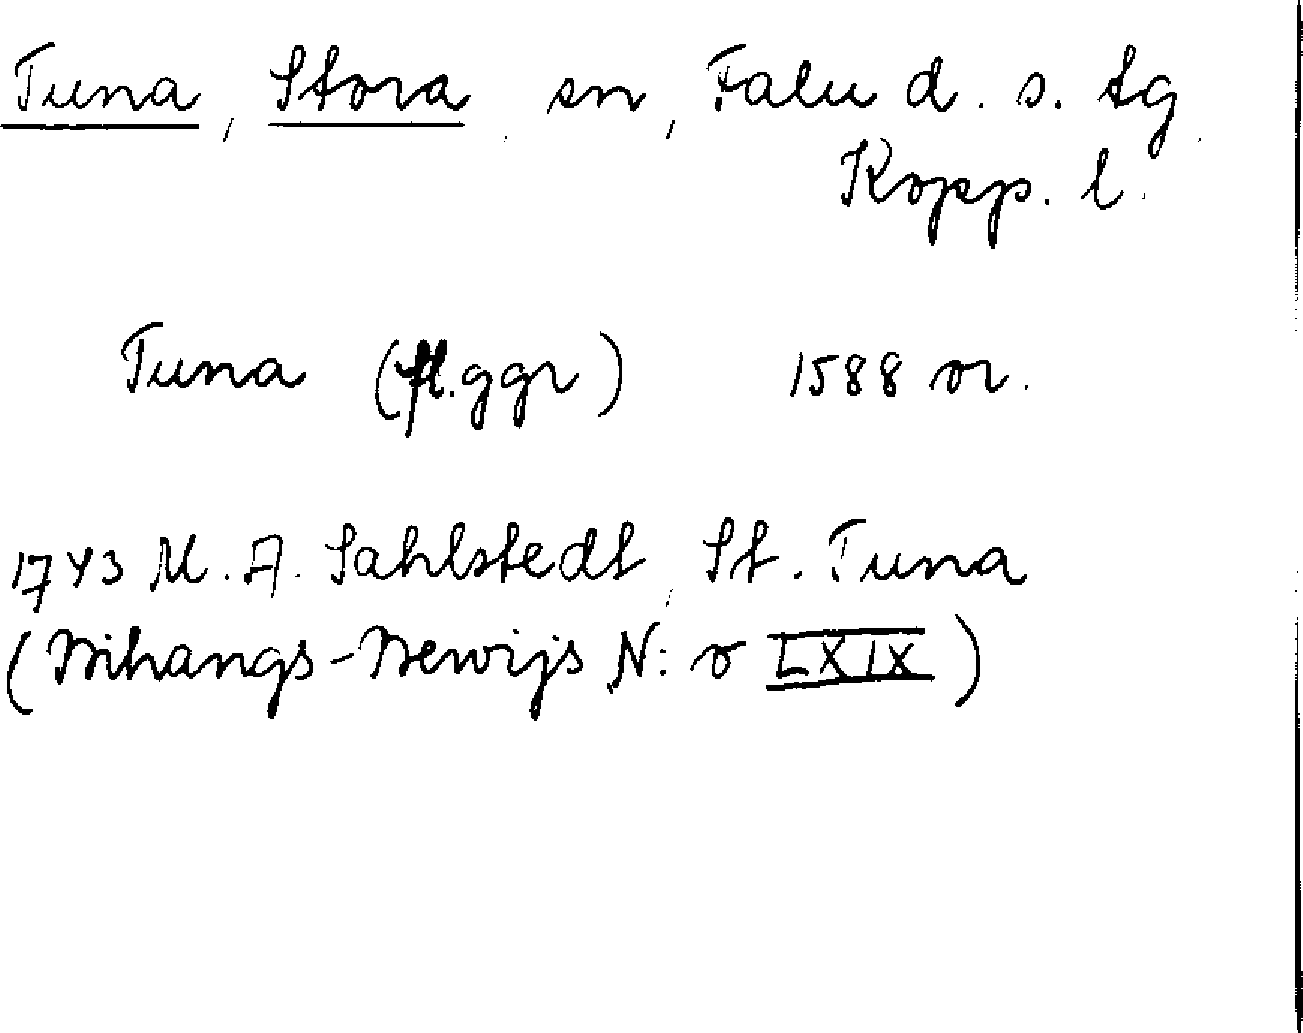 Tuna, Stora sn, Falu d. s. tg
Kopp. l.
Tuna (fl.ggr) 1588 or.
1743 M. A. Sahlstedt, St. Tuna
(Bihangs-Bewijs N:o LXIX)